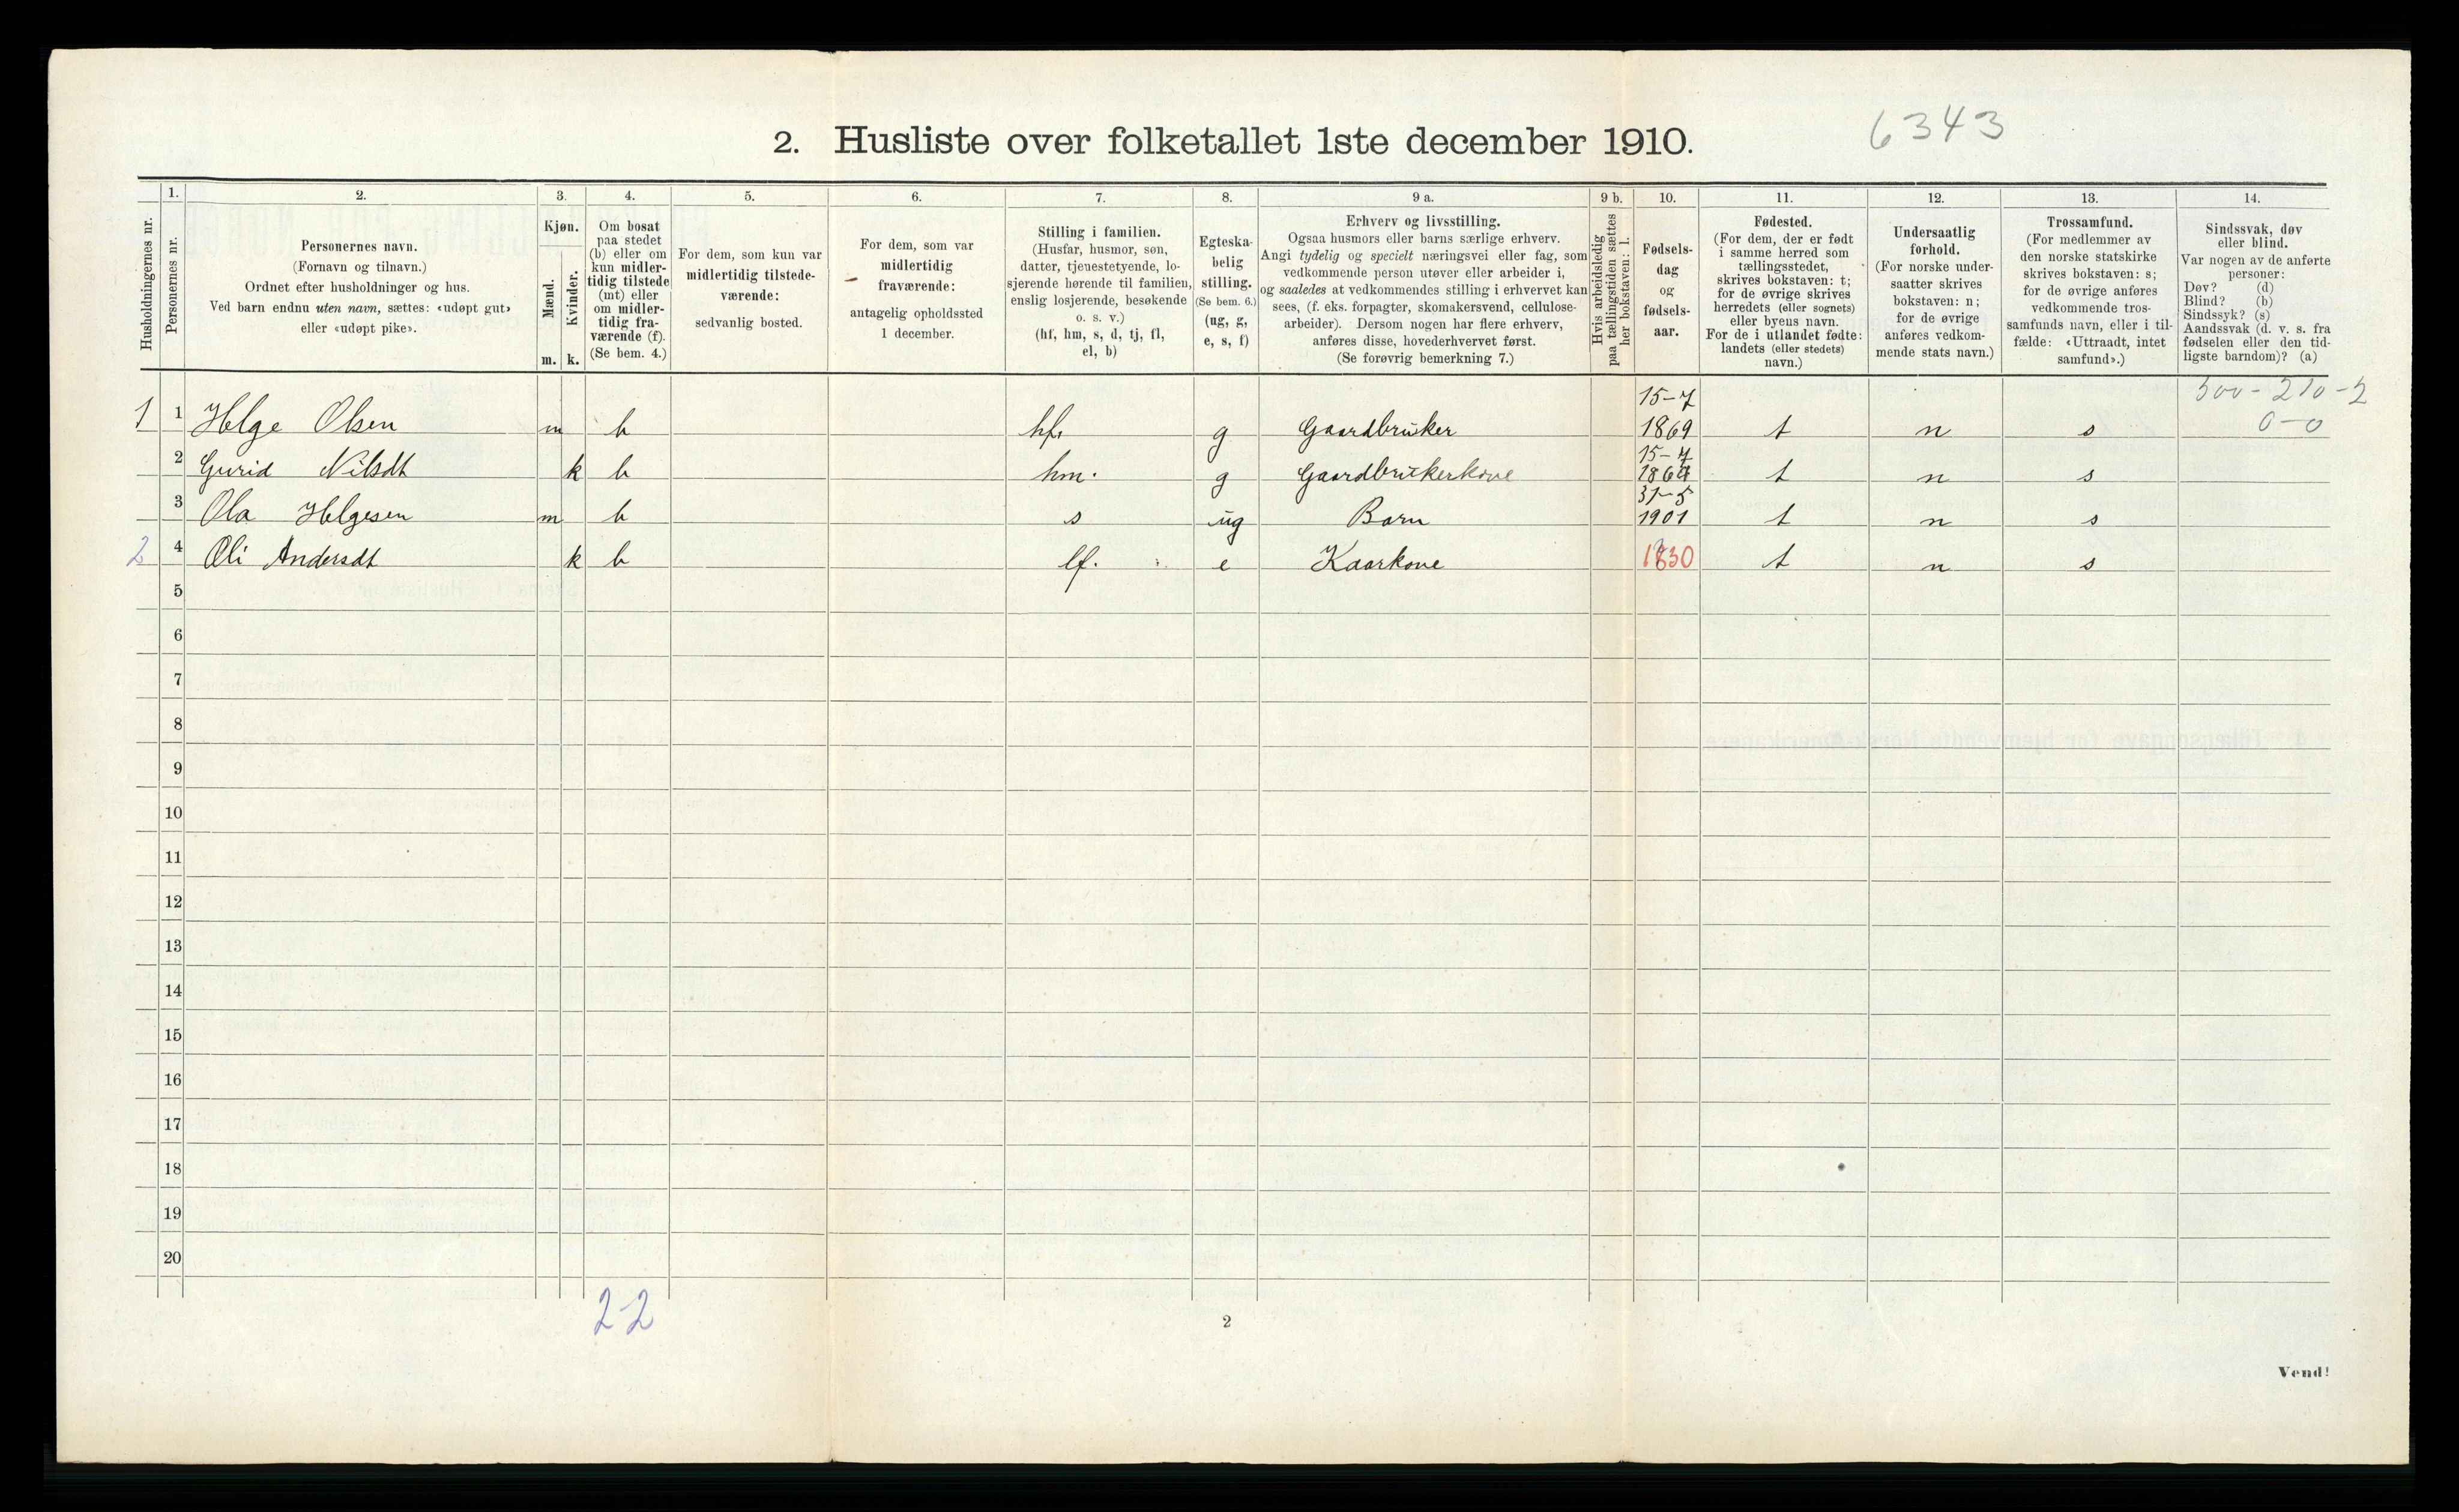 6343
2. Husliste over folketallet 1ste december 1910.
1. 2. 3. 4. 5. 6. 7. 8. 9 a. 9 b. 10. 11. 12. 13. 14.
Husholdningernes nr.
Personernes nr.
Personernes navn.
(Fornavn og tilnavn.)
Ordnet efter husholdninger og hus.
Ved barn endnu uten navn, sættes: «udøpt gut»
eller «udøpt pike».
Kjøn.
Mænd.
Kvinder.
m. k.
Om bosat
paa stedet
(b) eller om
kun midler-
tidig tilstede
(mt) eller
om midler-
tidig fra-
værende (f).
(Se bem. 4.)
For dem, som kun var
midlertidig tilstede-
værende:
sedvanlig bosted.
For dem, som var
midlertidig
fraværende:
antagelig opholdssted
1 december.
Stilling i familien.
(Husfar, husmor, søn,
datter, tjenestetyende, lo-
sjerende hørende til familien,
enslig losjerende, besøkende
o. s. v.)
(hf, hm, s, d, tj, fl,
el, b)
Egteska-
belig
stilling.
(Se bem. 6.)
(ug, g,
e, s, f)
Erhverv og livsstilling.
Ogsaa husmors eller barns særlige erhverv.
Angi tydelig og specielt næringsvei eller fag, som
vedkommende person utøver eller arbeider i,
og saaledes at vedkommendes stilling i erhvervet kan
sees, (f. eks. forpagter, skomakersvend, cellulose-
arbeider). Dersom nogen har flere erhverv,
anføres disse, hovederhvervet først.
(Se forøvrig bemerkning 7.)
Hvis arbeidsledig
paa tællingstiden sættes
her bokstaven: l.
Fødsels-
dag
og
fødsels-
aar.
Fødested.
(For dem, der er født
i samme herred som
tællingsstedet,
skrives bokstaven: t;
for de øvrige skrives
herredets (eller sognets)
eller byens navn.
For de i utlandet fødte:
landets (eller stedets)
navn.)
Undersaatlig
forhold.
(For norske under-
saatter skrives
bokstaven: n;
for de øvrige
anføres vedkom-
mende stats navn.)
Trossamfund.
(For medlemmer av
den norske statskirke
skrives bokstaven: s;
for de øvrige anføres
vedkommende tros-
samfunds navn, eller i til-
fælde: «Uttraadt, intet
samfund».)
Sindssvak, døv
eller blind.
Var nogen av de anførte
personer:
Døv? (d)
Blind? (b)
Sindssyk? (s)
Aandssvak (d. v. s. fra
fødselen eller den tid-
ligste barndom)? (a)
500-210-2
0-0
15-7
1 1 Helge Olsen m b hf. g Gaardbruker 1869 t n s
15-7
2 Gurid Nilsdt k b hm. g Gaardbrukerkone t n s
31-5
3 Ola Helgesen m b s ug Barn 1901 t n s
2 4 Oli Andersdt k b lf. e Kaarkone 1830 t n s
5
6
7
8
9
10
11
12
13
14
15
16
17
18
19
20
22
2
Vend!